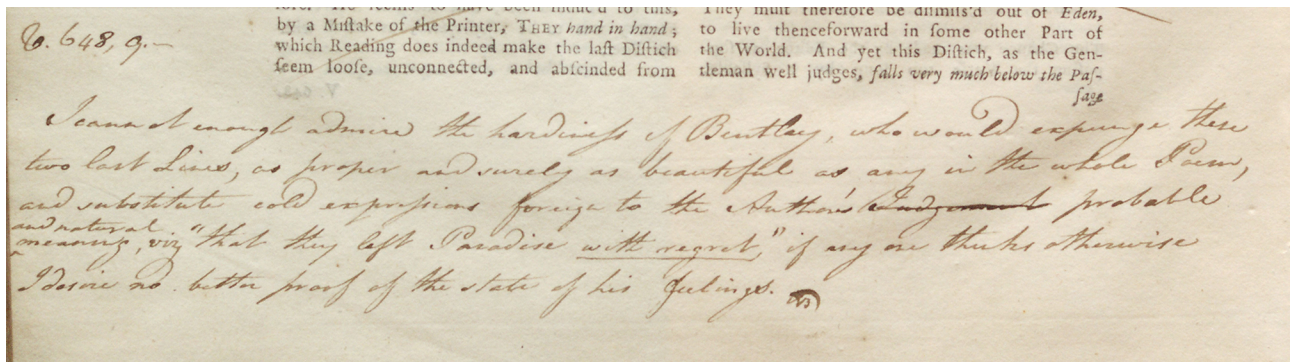 fore. He seems to have been induc'd to this,
by a Miſtake of the Printer, THEY hand in hand;
which Reading does indeed make the laſt Diſtich
ſeem looſe, unconnected, and abſcinded from
They muſt therefore be diſmiſs'd out of Eden,
to live thenceforward in ſome other Part of
the World. And yet this Diſtich, as the Gen-
tleman well judges, falls very much below the Paſ-
ſage
V. 648, 9.—
I cannot enough admire the hardineſs of Bentley, who would expunge these
two last Lines, as proper and surely as beautiful as any in the whole Poem,
and substitute cold expreſsions foreign to the Author's Judgement probable
and natural
meaning, viz "that they left Paradise with regret," if any one thinks otherwise
I desire no better proof of the state of his feelings.